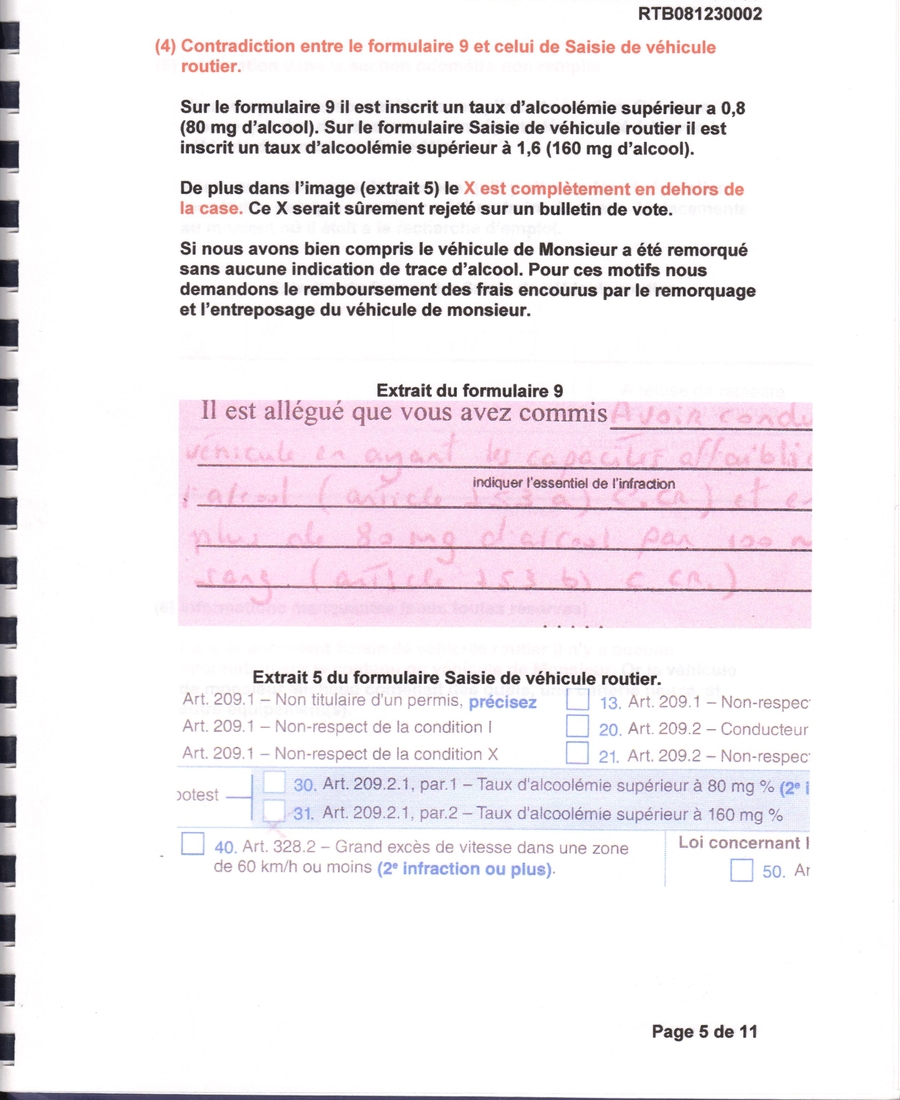 RTB081230002
(4) Contradiction entre le formulaire 9 et celui de Saisie de véhicule
routier.
Sur le formulaire 9 il est inscrit un taux d'alcoolémie supérieur a 0,8
(80 mg d'alcool). Sur le formulaire Saisie de véhicule routier il est
inscrit un taux d'alcoolémie supérieur à 1,6 (160 mg d'alcool).
De plus dans l'image (extrait 5) le X est complètement en dehors de
la case. Ce X serait sûrement rejeté sur un bulletin de vote.
Si nous avons bien compris le véhicule de Monsieur a été remorqué
sans aucune indication de trace d'alcool. Pour ces motifs nous
demandons le remboursement des frais encourus par le remorquage
et l'entreposage du véhicule de monsieur.
Extrait du formulaire 9
Il est allégué que vous avez commis Avoir condu
véhicule en ayant les capacités affaibli
indiquer l'essentiel de l'infraction
l'alcool (article 253 a) C.CR.) et e
plus de 80 mg d'alcool par 100 m
sang (article 253 b) C.CR.)
Extrait 5 du formulaire Saisie de véhicule routier.
Art. 209.1 – Non titulaire d'un permis, précisez 13. Art. 209.1 – Non-respec
Art. 209.1 – Non-respect de la condition I 20. Art. 209.2 – Conducteur
Art. 209.1 – Non-respect de la condition X 21. Art. 209.2 – Non-respec
30. Art. 209.2.1, par.1 – Taux d'alcoolémie supérieur à 80 mg % (2e i
otest
31. Art. 209.2.1, par.2 – Taux d'alcoolémie supérieur à 160 mg %
X
40. Art. 328.2 – Grand excès de vitesse dans une zone Loi concernant l
de 60 km/h ou moins (2e infraction ou plus). 50. Ar
Page 5 de 11